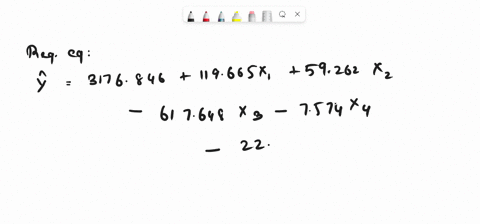 Reg. eq:
ŷ = 3176.846 + 119.665x₁ + 59.262 x₂
− 617.648 x₃ − 7.574 x₄
− 22.